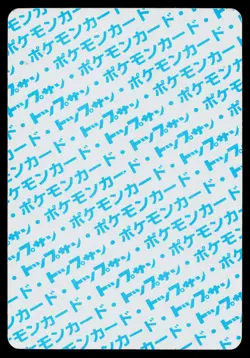 ポケモンカード・トップサン
トップサン・ポケモンカード
ポケモンカード・トップサン・
トップサン・ポケモンカード・
ポケモンカード・トップサン・
トップサン・ポケモンカード・
ポケモンカード・トップサン・
トップサン・ポケモンカード・
ポケモンカード・トップサン・
トップサン・ポケモンカード・
ポケモンカード・トップサン
トップサン・ポケモンカード